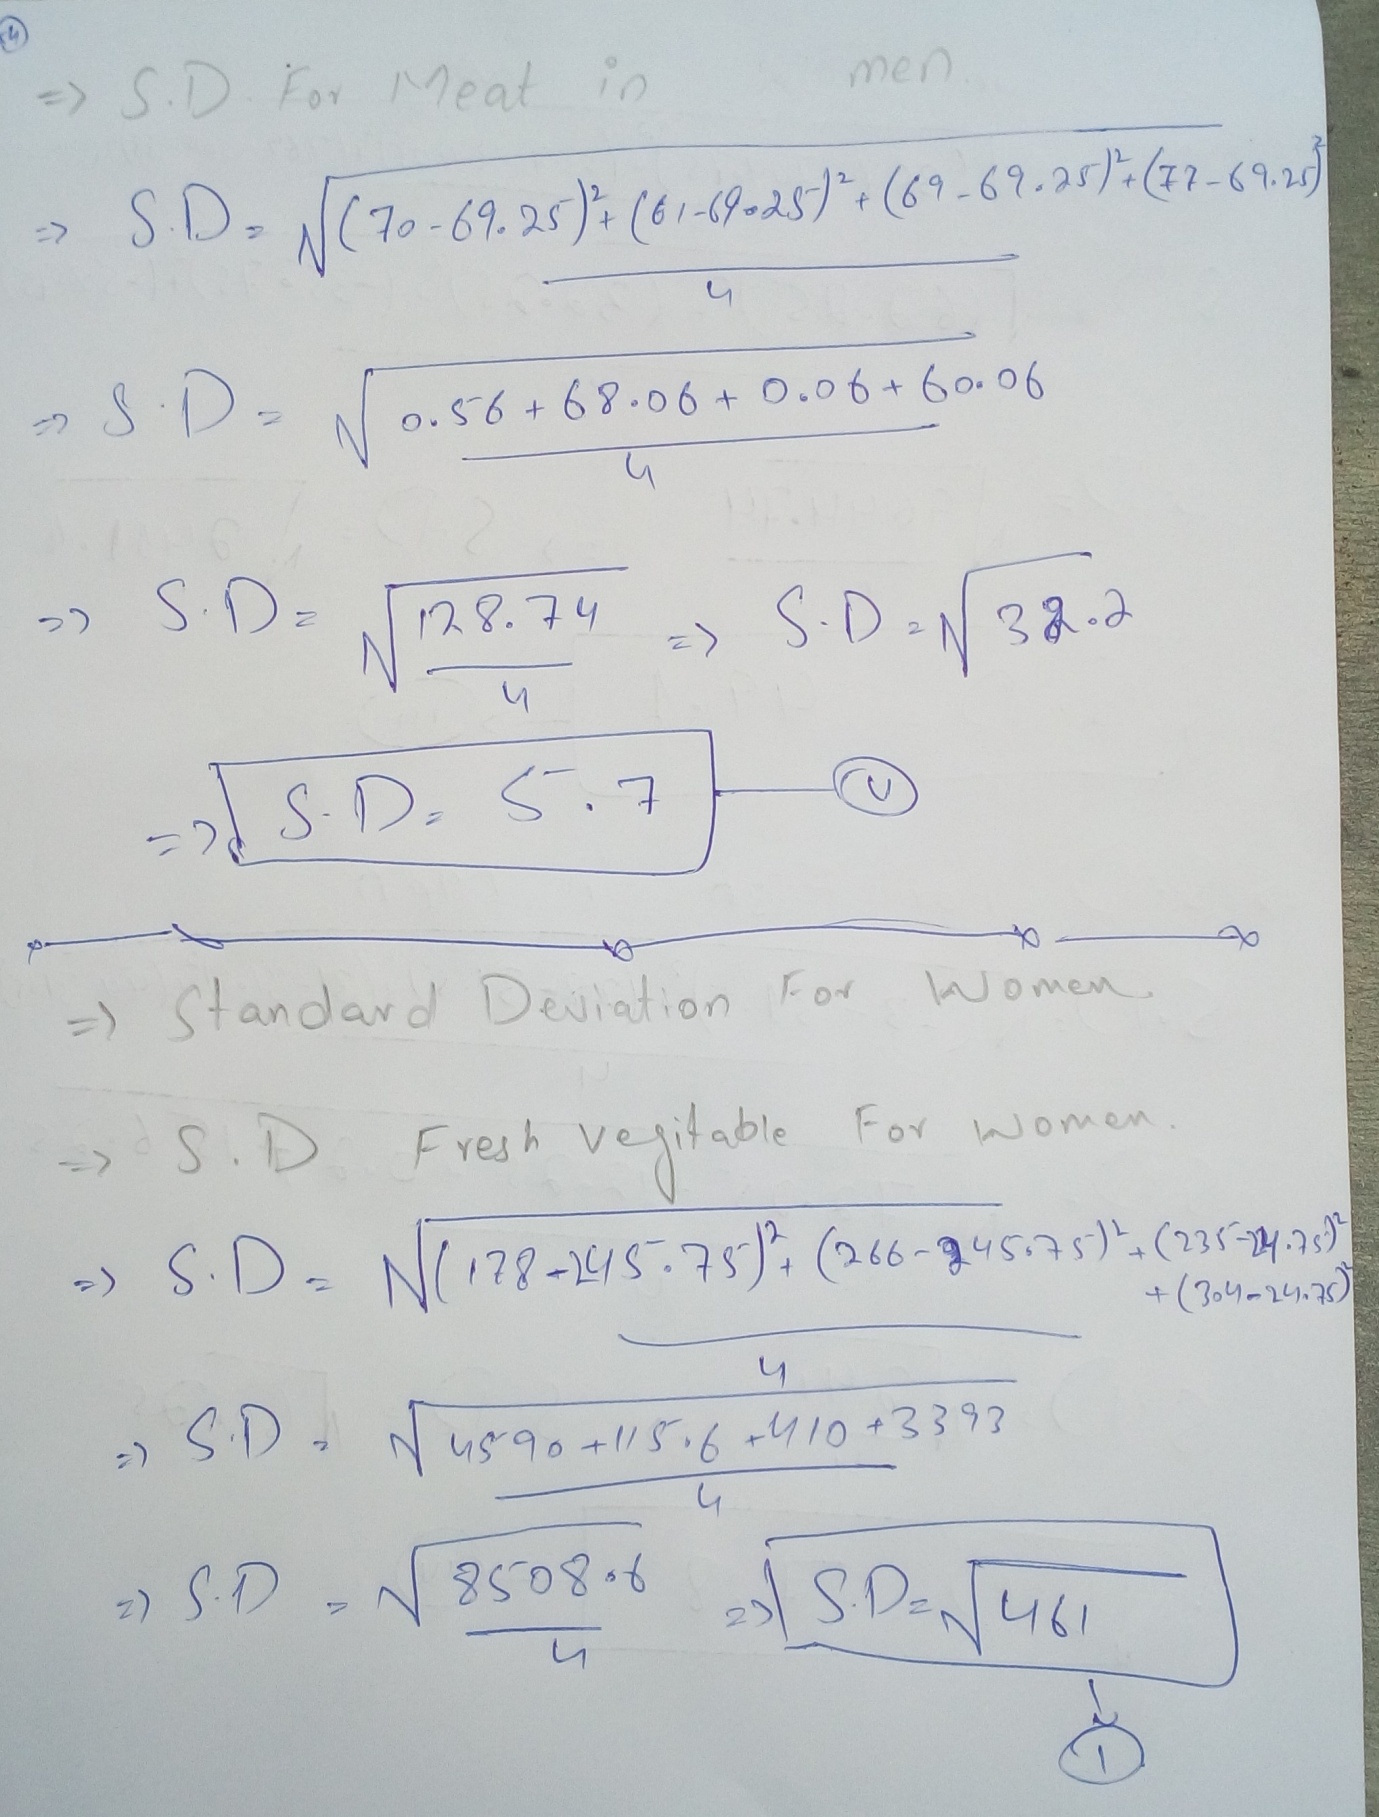 4
=> S.D. For Meat in men.
=> S.D = √(70-69.25)²+(61-69.25)²+(69-69.25)²+(77-69.25)²
4
=> S.D = √0.56+68.06+0.06+60.06
4
=> S.D = √128.74 => S.D = √32.2
4
=> S.D = 5.7
=> Standard Deviation For Women.
=> S.D Fresh vegitable For women.
=> S.D = √(178-245.75)²+(266-245.75)²+(235-24.75)²
+(304-24.75)²
4
=> S.D = √4590+115.6+410+3393
4
=> S.D = √8508.6 => S.D = √461
4
1